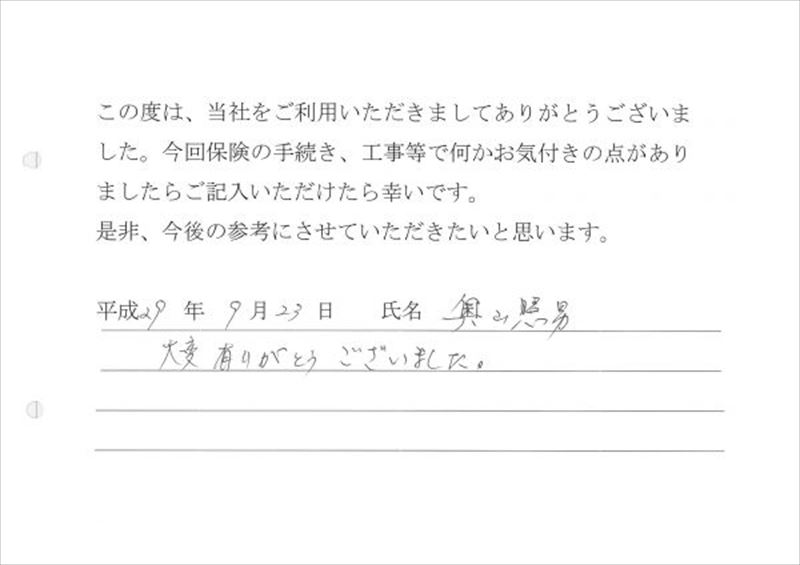 この度は、当社をご利用いただきましてありがとうございま
した。今回保険の手続き、工事等で何かお気付きの点があり
ましたらご記入いただけたら幸いです。
是非、今後の参考にさせていただきたいと思います。
平成29年 9月23日 氏名 奥山照男
大変有りがとうございました。